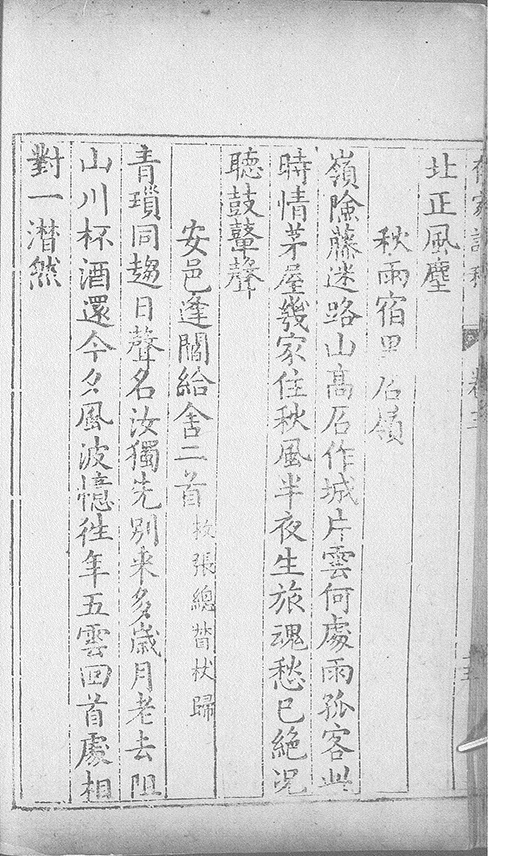 北正風塵
秋雨宿黑石嶺
嶺險藤迷路山高石作城片雲何處雨孤客此
時情茅屋幾家住秋風半夜生旅魂愁已絕况
聽鼓鼙聲
安邑逢閻給舍二首救張總督杖歸
青瑣同趨日聲名汝獨先別来多歲月老去阻
山川杯酒還今夕風波憶徃年五雲回首處相
對一潸然